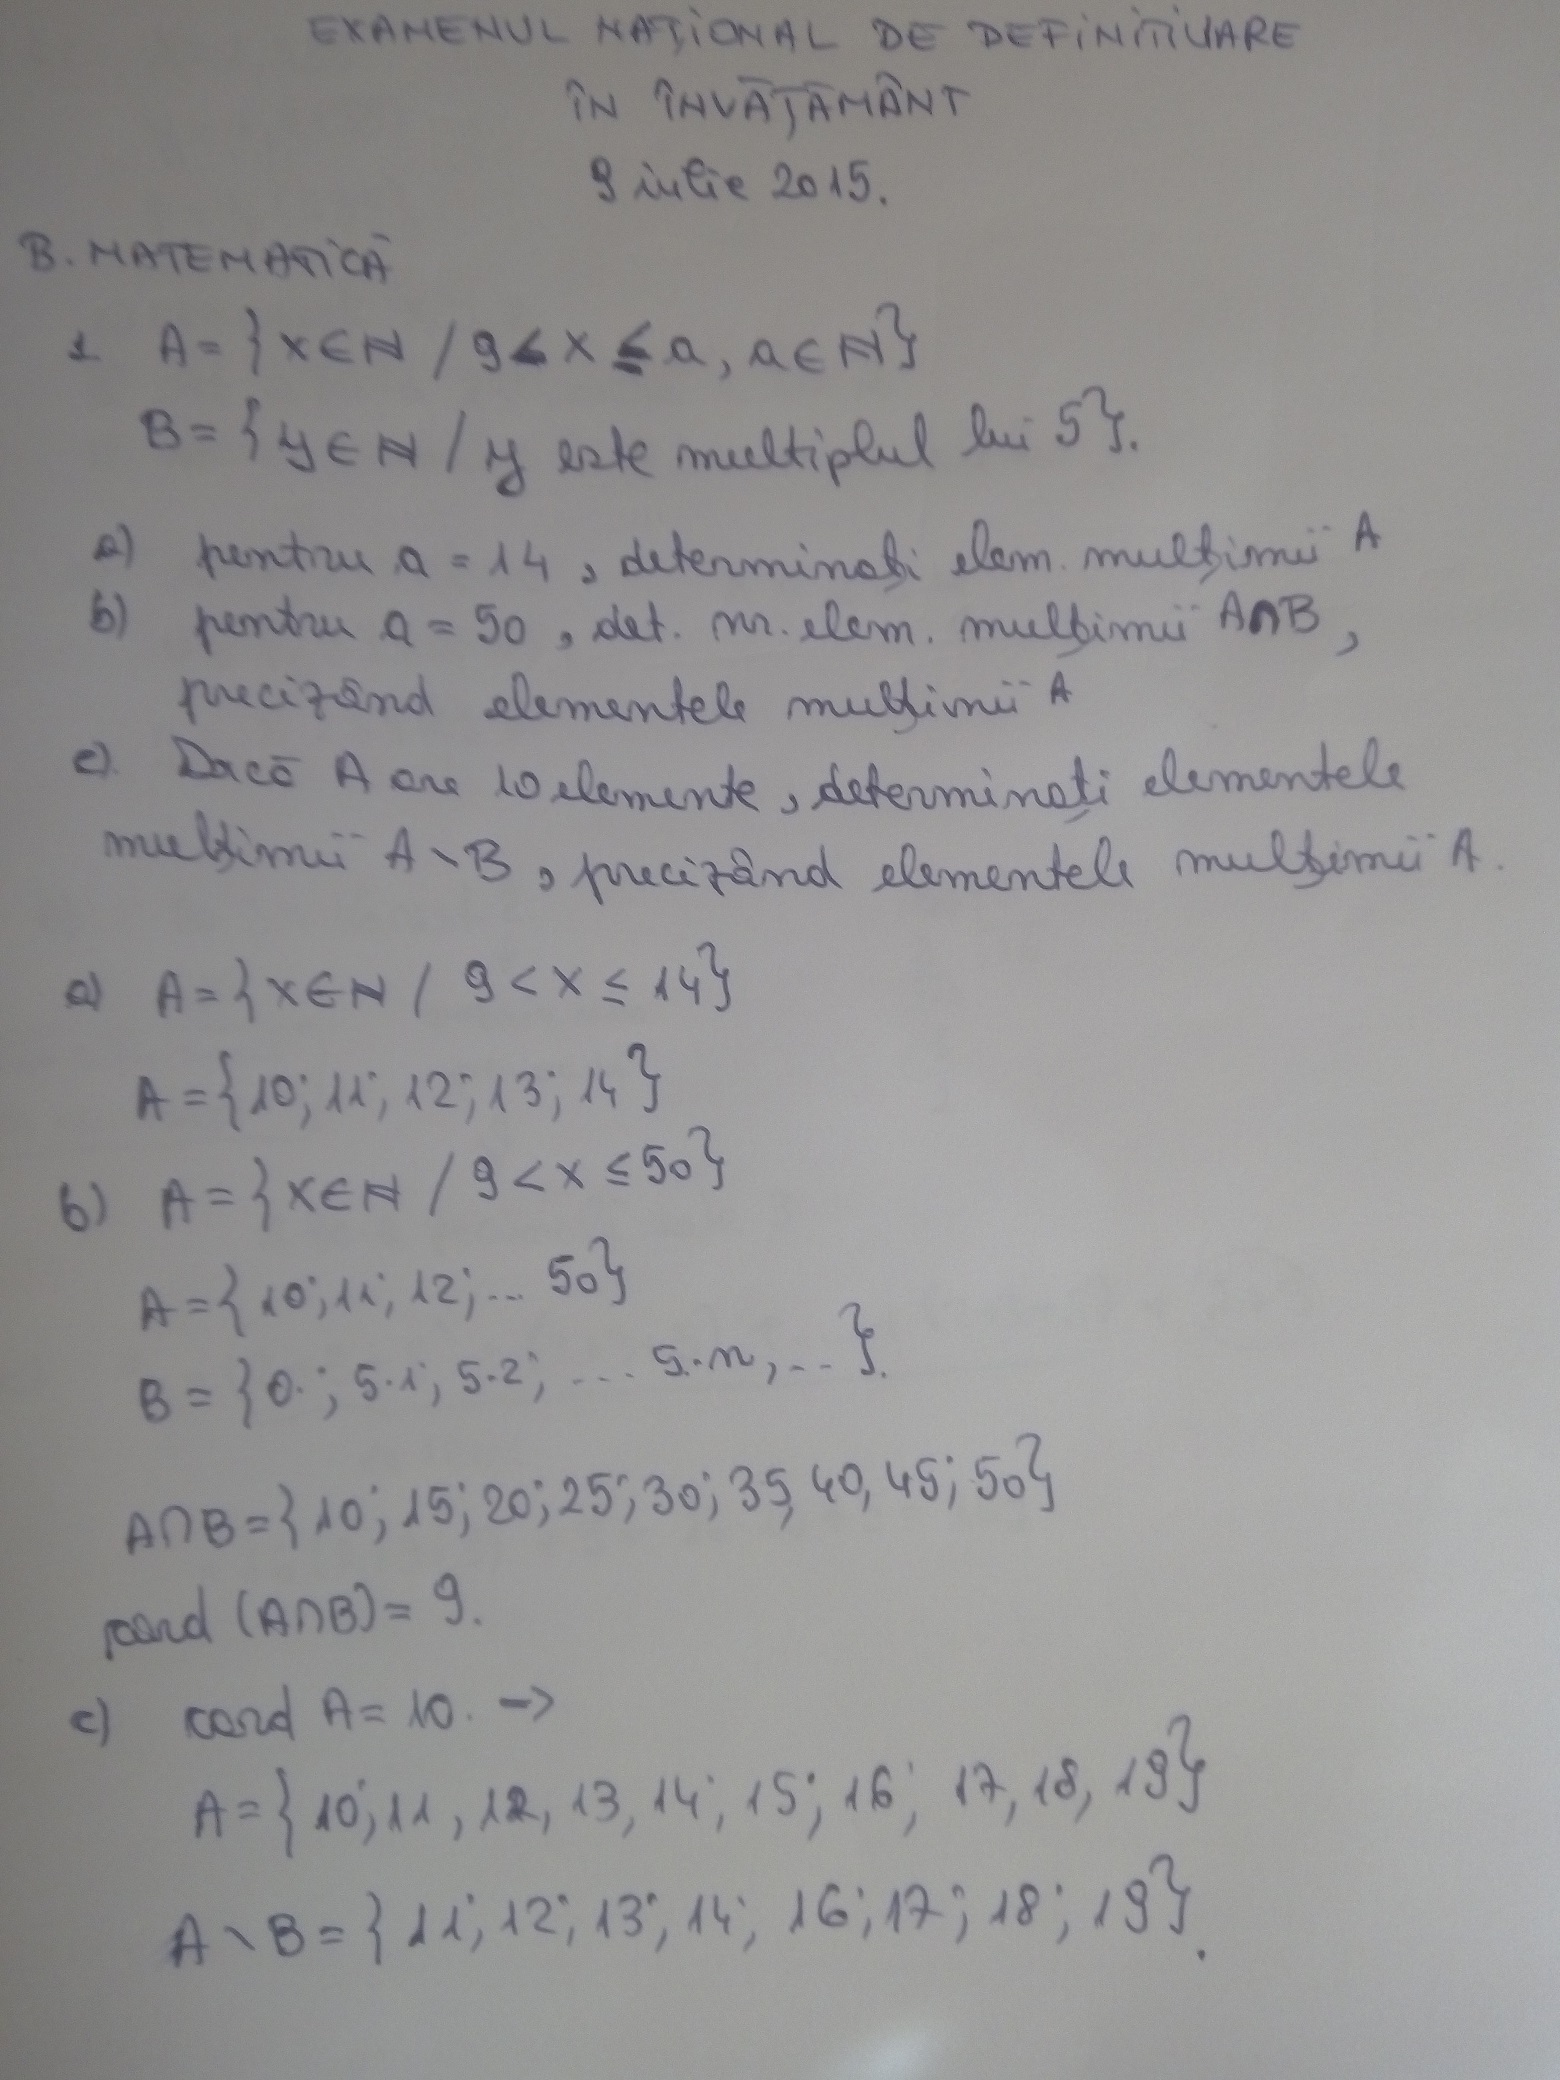 EXAMENUL NAȚIONAL DE DEFINITIVARE
ÎN ÎNVĂȚĂMÂNT
9 iulie 2015.
B. MATEMATICĂ
1. A = {x∈ℕ / 9 < x ≤ a, a∈ℕ}
B = {y∈ℕ / y este multiplul lui 5}.
a) pentru a = 14, determinați elem. mulțimii A
b) pentru a = 50, det. nr. elem. mulțimii A∩B,
precizând elementele mulțimii A
c). Dacă A are 10 elemente, determinați elementele
mulțimii A \ B, precizând elementele mulțimii A.
a) A = {x∈ℕ / 9 < x ≤ 14}
A = {10; 11; 12; 13; 14}
b) A = {x∈ℕ / 9 < x ≤ 50}
A = {10; 11; 12; ... 50}
B = {0.; 5·1; 5·2; .... 5·n, ... }.
A∩B = {10; 15; 20; 25; 30; 35, 40, 45; 50}
card (A∩B) = 9.
c) card A = 10. →
A = {10; 11, 12, 13, 14; 15; 16; 17, 18, 19}
A \ B = {11; 12; 13; 14; 16; 17; 18; 19}.